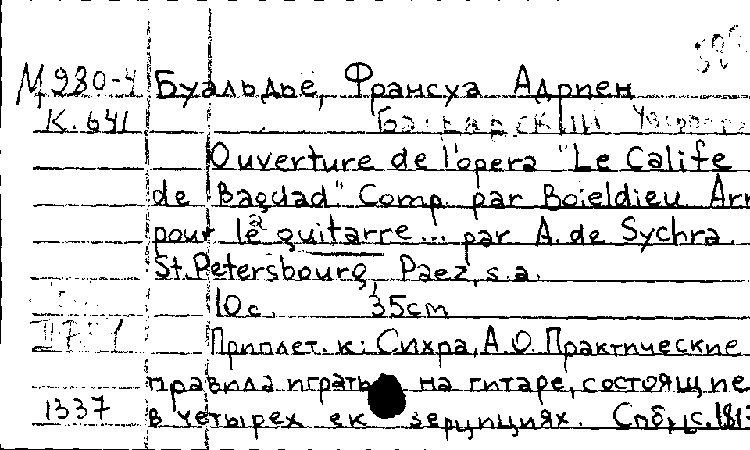 М 980-4 Буальдье, Франсуа Адриен
К. 641
Ouverture de l'opera "Le Calife
de Bagdad" Comp par Boieldieu Arr
pour le guitarre... par A. de Sychra
St. Petersbourg, Paez, s.a.
10с. 35cm
Приплет. к: Сихра, А.О. Практические
правила играть на гитаре, состоящие
1337 в четырех екзерцициях. Спб,